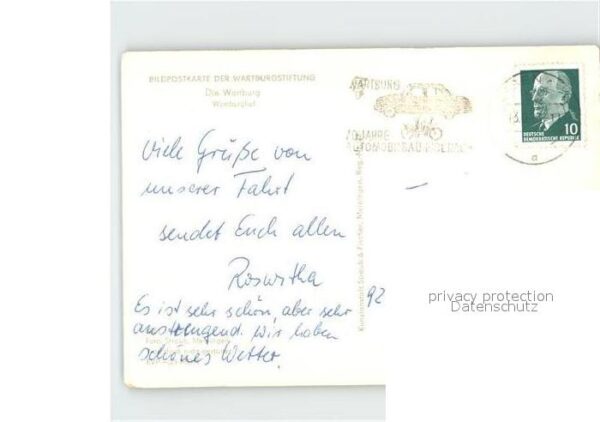 BILDPOSTKARTE DER WARTBURGSTIFTUNG
Die Wartburg
WARTBURG
70 JAHRE
AUTOMOBILBAU
DEUTSCHE
DEMOKRATISCHE REPUBLIK
10
Viele Grüße von
unserer Fahrt
sendet Euch allen
Roswitha
Es ist sehr schön, aber sehr
anstrengend. Wir haben
schönes Wetter.
Kunstanstalt Straub & Fischer, Meiningen
92
privacy protection
Datenschutz